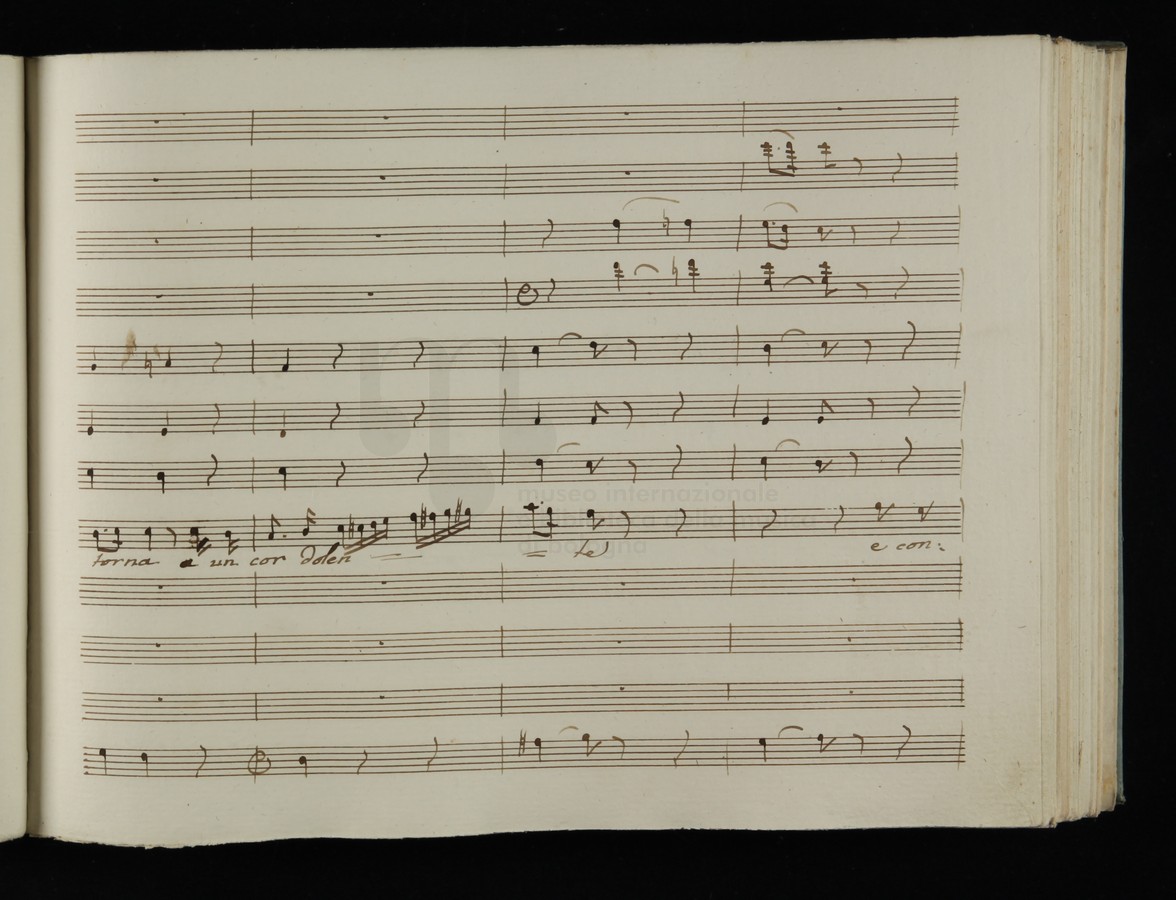 torna a un cor dolen - - te e con:
museo internazionale
e biblioteca della musica
di bologna